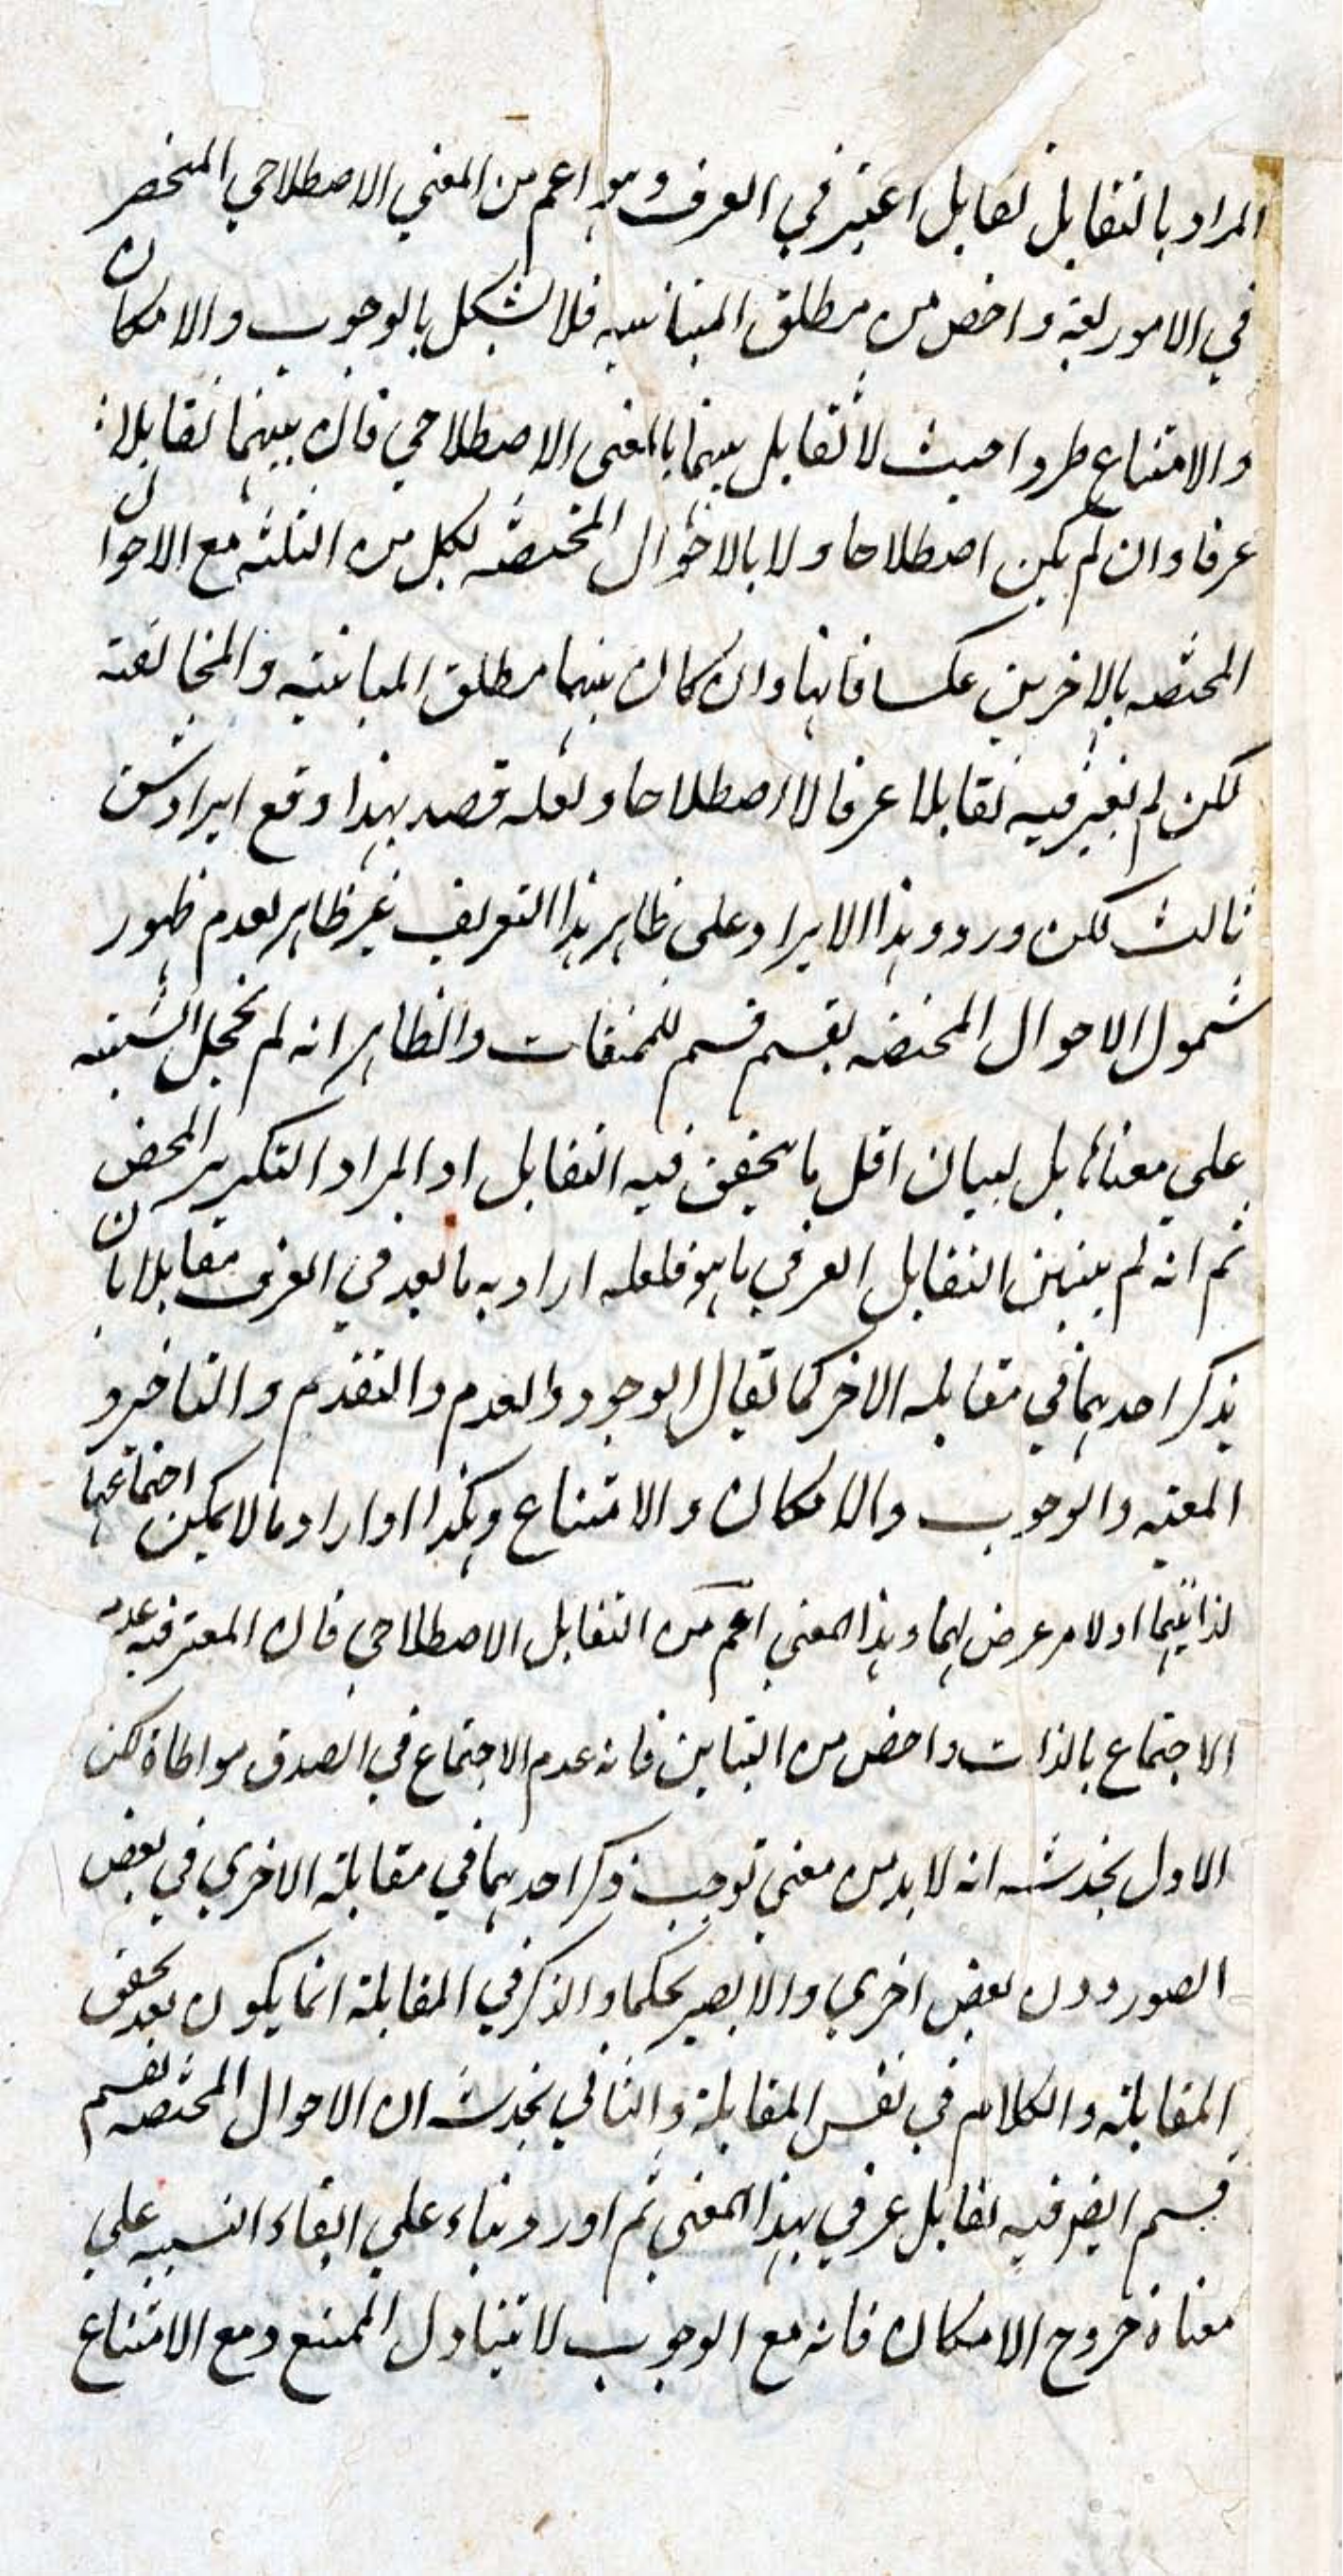 المراد بالتقابل تقابل اعتبر في العرف وهو اعم من المعني الاصطلاحي المنحصر
في الامور لعة واخص من مطلق المباينة فلا يشكل بالوجوب والامكان
والامتناع طردا حيث لا تقابل بينها بالمعني الاصطلاحي فان بينهما تقابلا
عرفا وان لم يكن اصطلاحا ولا بالاحوال المختصة لكل من الثلثة مع الاحوال
المختصة بالاخرين عكسا فانها وان كان بينهما مطلق المباينة والمخالفة
لكن لم يعتبر فيه تقابلا عرفا لا اصطلاحا ولعله قصد بهذا دفع ايراد شق
ثالث لكن ورود هذا الايراد علي ظاهر هذا التعريف غير ظاهر لعدم ظهور
شمول الاحوال المختصة بقسم قسم للمتقات والظاهر انه لم يجعل التثنية
علي معناها بل لبيان اقل ما يتحقق فيه التقابل او المراد التكرير المحض
ثم انه لم يبين التقابل العرفي ما هو فلعله اراد به ما يعد في العرف مقابلا بان
يذكر احدهما في مقابلة الاخر كما يقال الوجود والعدم والتقدم والتاخر و
المعية والوجوب والامكان والامتناع وهكذا او اراد ما لا يمكن اجتماعها
لذاتيهما او لامر عرض لهما وهذا المعني اعم من التقابل الاصطلاحي فان المعتبر فيه عدم
الاجتماع بالذات واخص من التباين فانه عدم الاجتماع في الصدق مواطاة لكن
الاول يخدشه انه لا بد من معني توجب ذكر احدهما في مقابلة الاخري في بعض
الصور دون بعض اخري والا يصير تحكما والذكر في المقابلة انما يكون بعد تحقق
المقابلة والكلام في نفس المقابلة والثاني يخدشه ان الاحوال المختصة بقسم
قسم ايضا فيه تقابل عرفي بهذا المعني ثم اورد بناء علي ابقاء التثنية علي
معناه خروج الامكان فانه مع الوجوب لا يتناول الممتنع ومع الامتناع